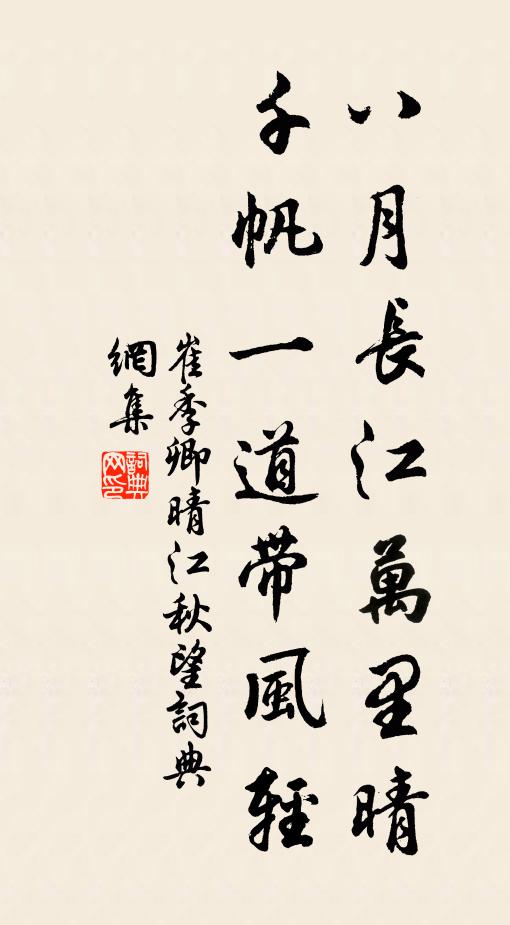 八月長江萬里晴
千帆一道帶風輕
崔季卿晴江秋望詞典
網集
詞典网印